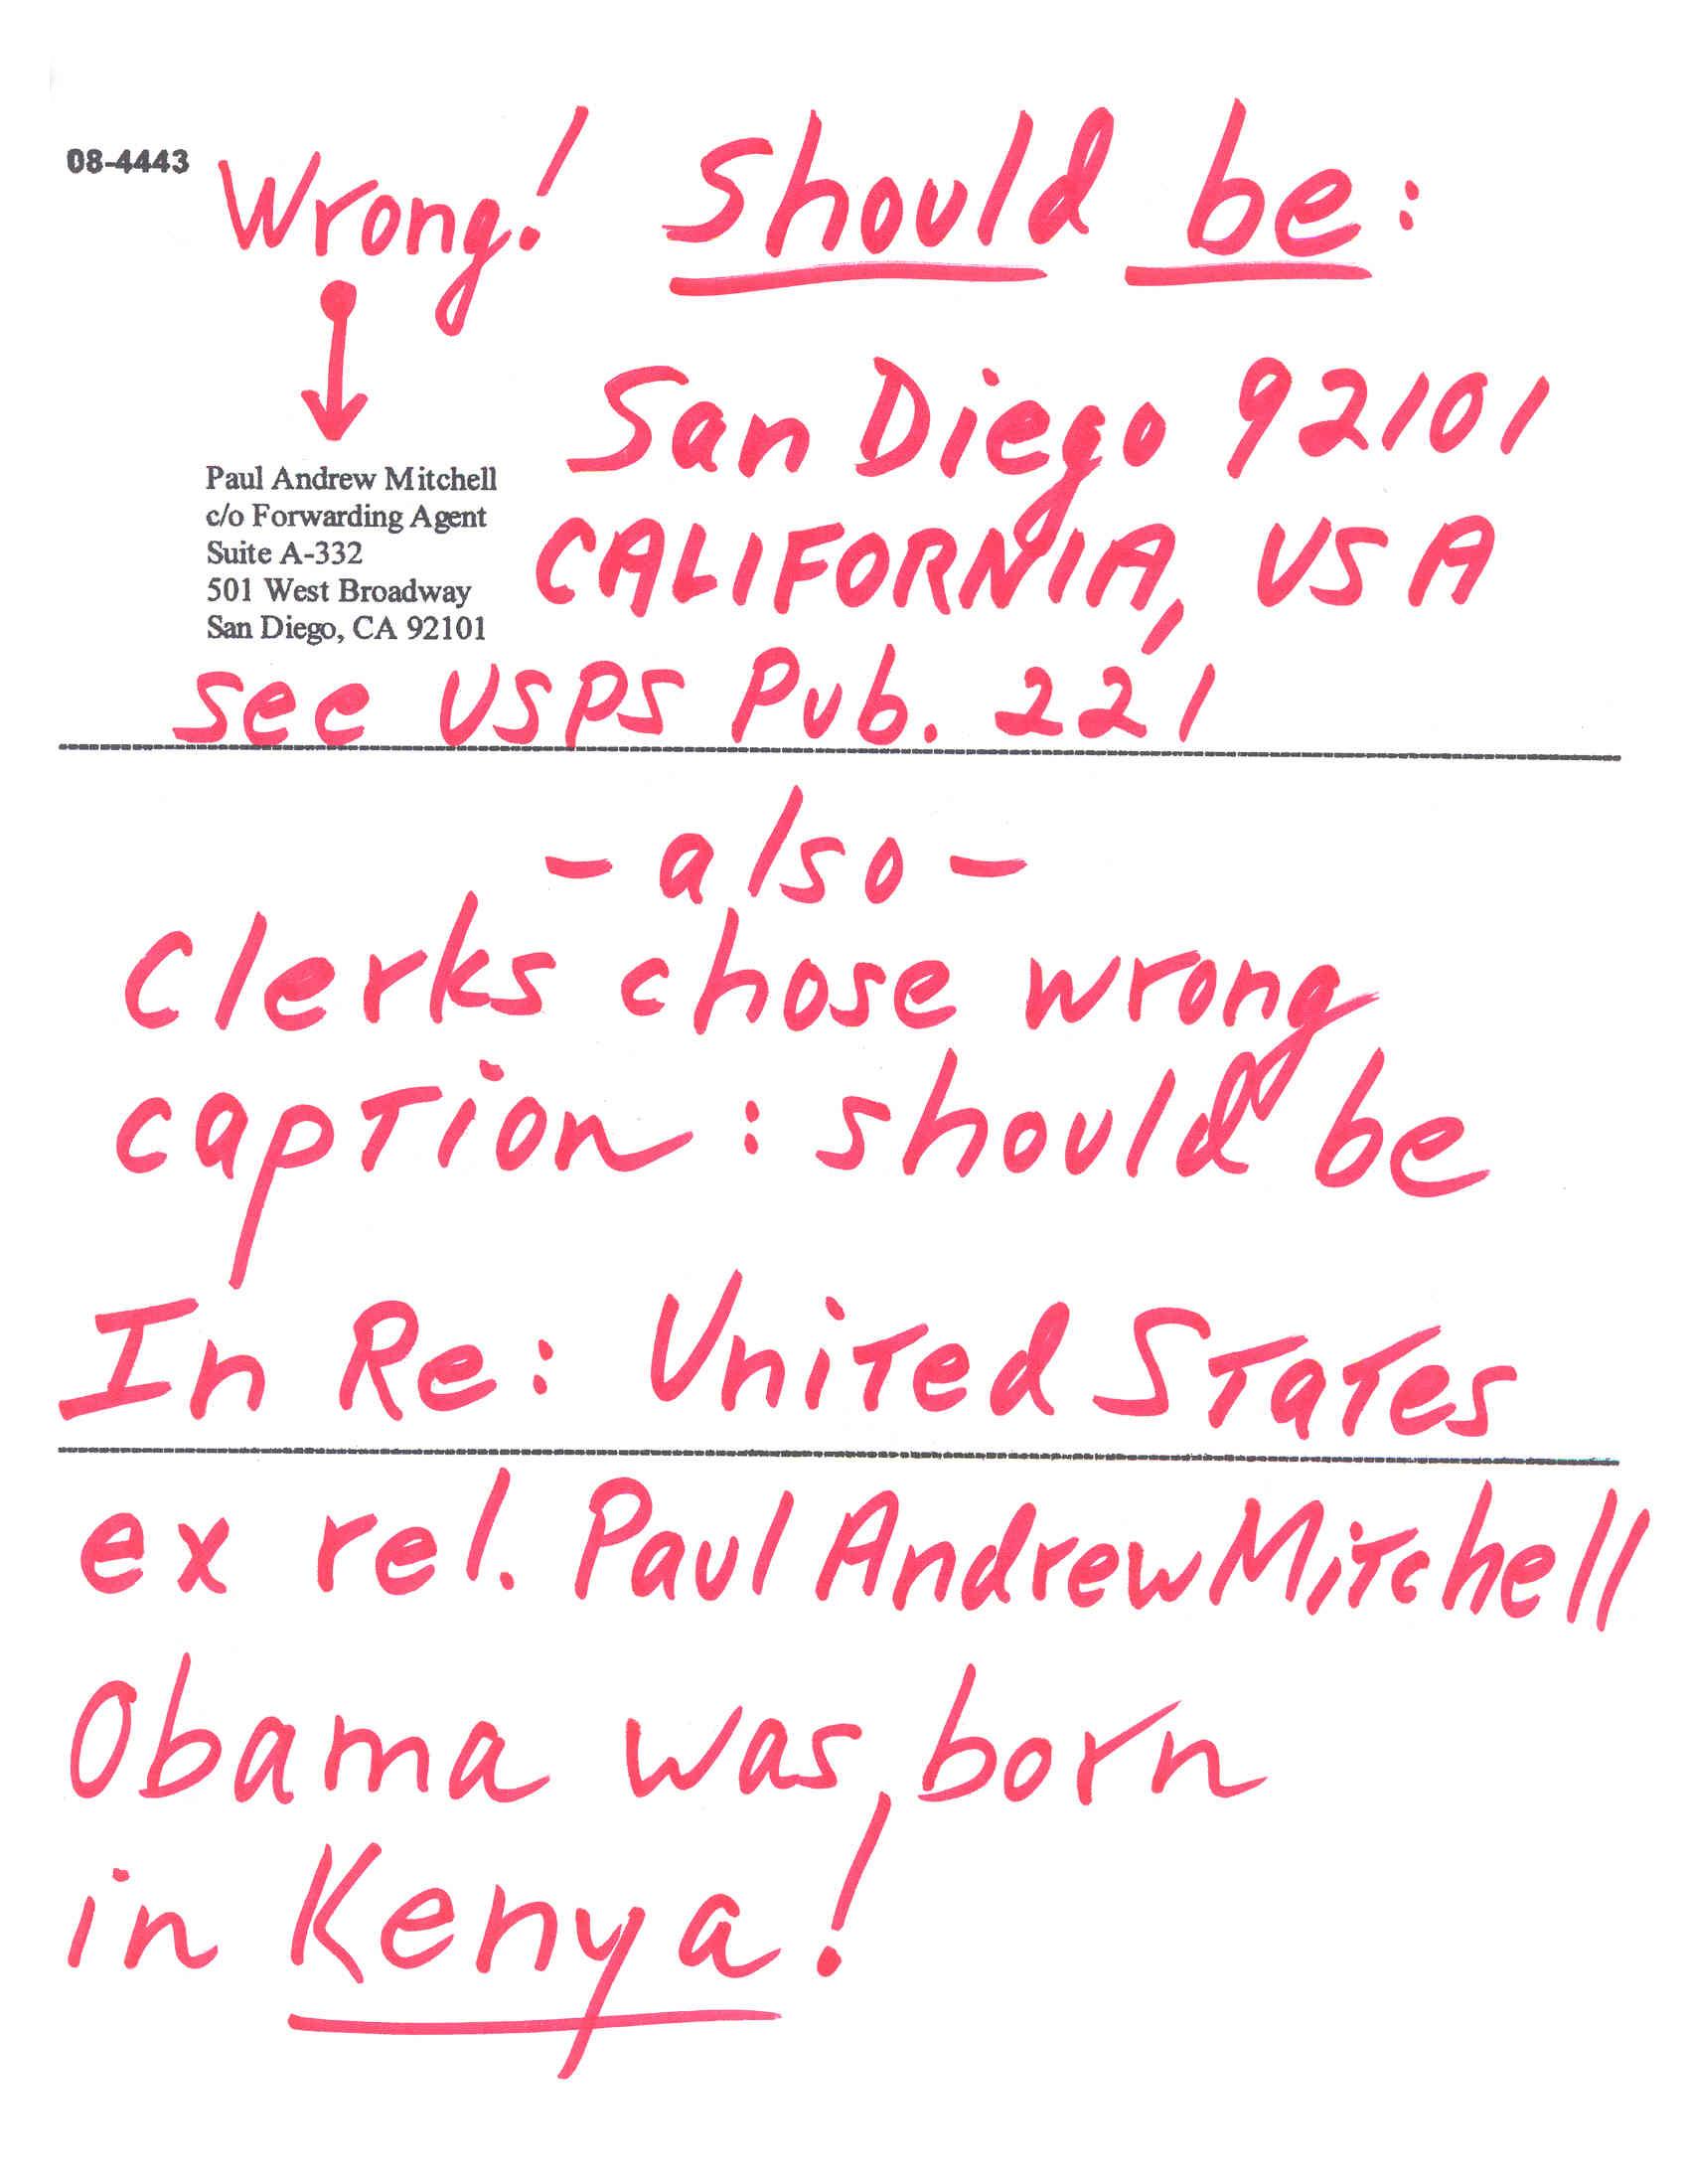 08-4443
Wrong! Should be:
San Diego 92101
CALIFORNIA, USA
Paul Andrew Mitchell
c/o Forwarding Agent
Suite A-332
501 West Broadway
San Diego, CA 92101
see USPS Pub. 221
- also -
Clerks chose wrong
caption: should be
In Re: United States
ex rel. Paul Andrew Mitchell
Obama was born
in Kenya!